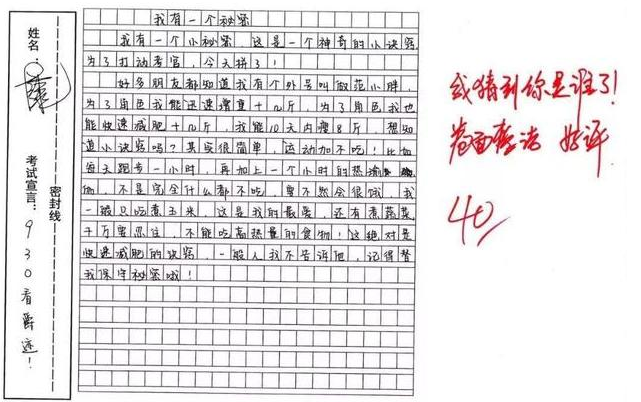 我有一个秘密
我有一个小秘密,这是一个神奇的小诀窍
为了打动考官,今天拼了!
好多朋友都知道我有个外号叫散范小胖,
为了角色我能迅速增重十几斤,为了角色我也
能快速减肥十几斤,我能10天内瘦8斤,想知
道小诀窍吗?其实很简单,运动加不吃!比如
每天跑步一小时,再加上一个小时的热瑜
伽,不是完全什么都不吃,要不然会很饿,我
一般只吃煮玉米,这是我的最爱,还有煮蔬菜
千万要忌住,不能吃高热量的食物!这绝对是
快速减肥的诀窍,一般人我不告诉他,记得替
我保守秘密哦!
姓名:
考试宣言:930看爵迹!
密封线
我猜到你是谁了!
卷面整洁 好评
40